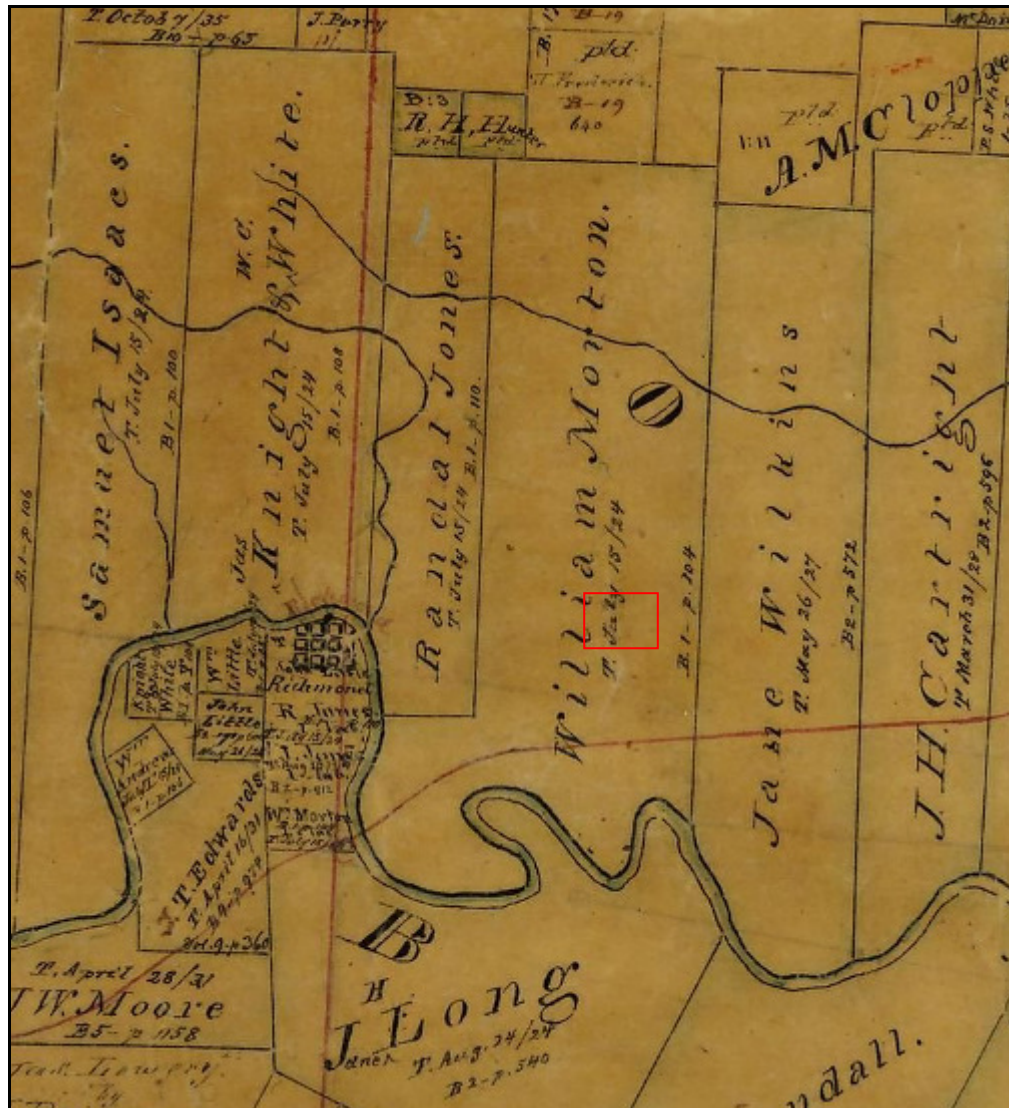 T. Octob 7/35
B10 - p. 65
J. Perry
B-19
ptd
T. Frederick
B-19
640
B:3
R. H. Hunter
ptd
ptd
ptd
1:11
A. M. Clopton
Ptd
P. S. White
Samuel Isaacs.
T. July 15/24
B. 1 - p 106
B 1 - p. 100
W. C.
Jas Knight & White.
T. July 15/24
B. 1 - p. 108
Randal Jones.
T. July 15/24 B. 1 - p. 110.
William Morton.
T. July 15/24
B. 1 - p. 104
Jane Wilkins
T. May 26/27
B2 - p 572
J. H. Cartright
T March 31/28
B2 - p 596
Knight
White
Wm
Little
John
Little
Richmond
R. Jones
Wm
Andrew
B 2 - p. 412
Wm Morton
T. July 15/24
J. T. Edwards
T. April 16/31
Vol. 9 - p 360
T. April 28/31
J W. Moore
B5 - p 1158
B
H
Janet Long
T. Aug. 24/24
B 2 - p. 540
by
ndall.